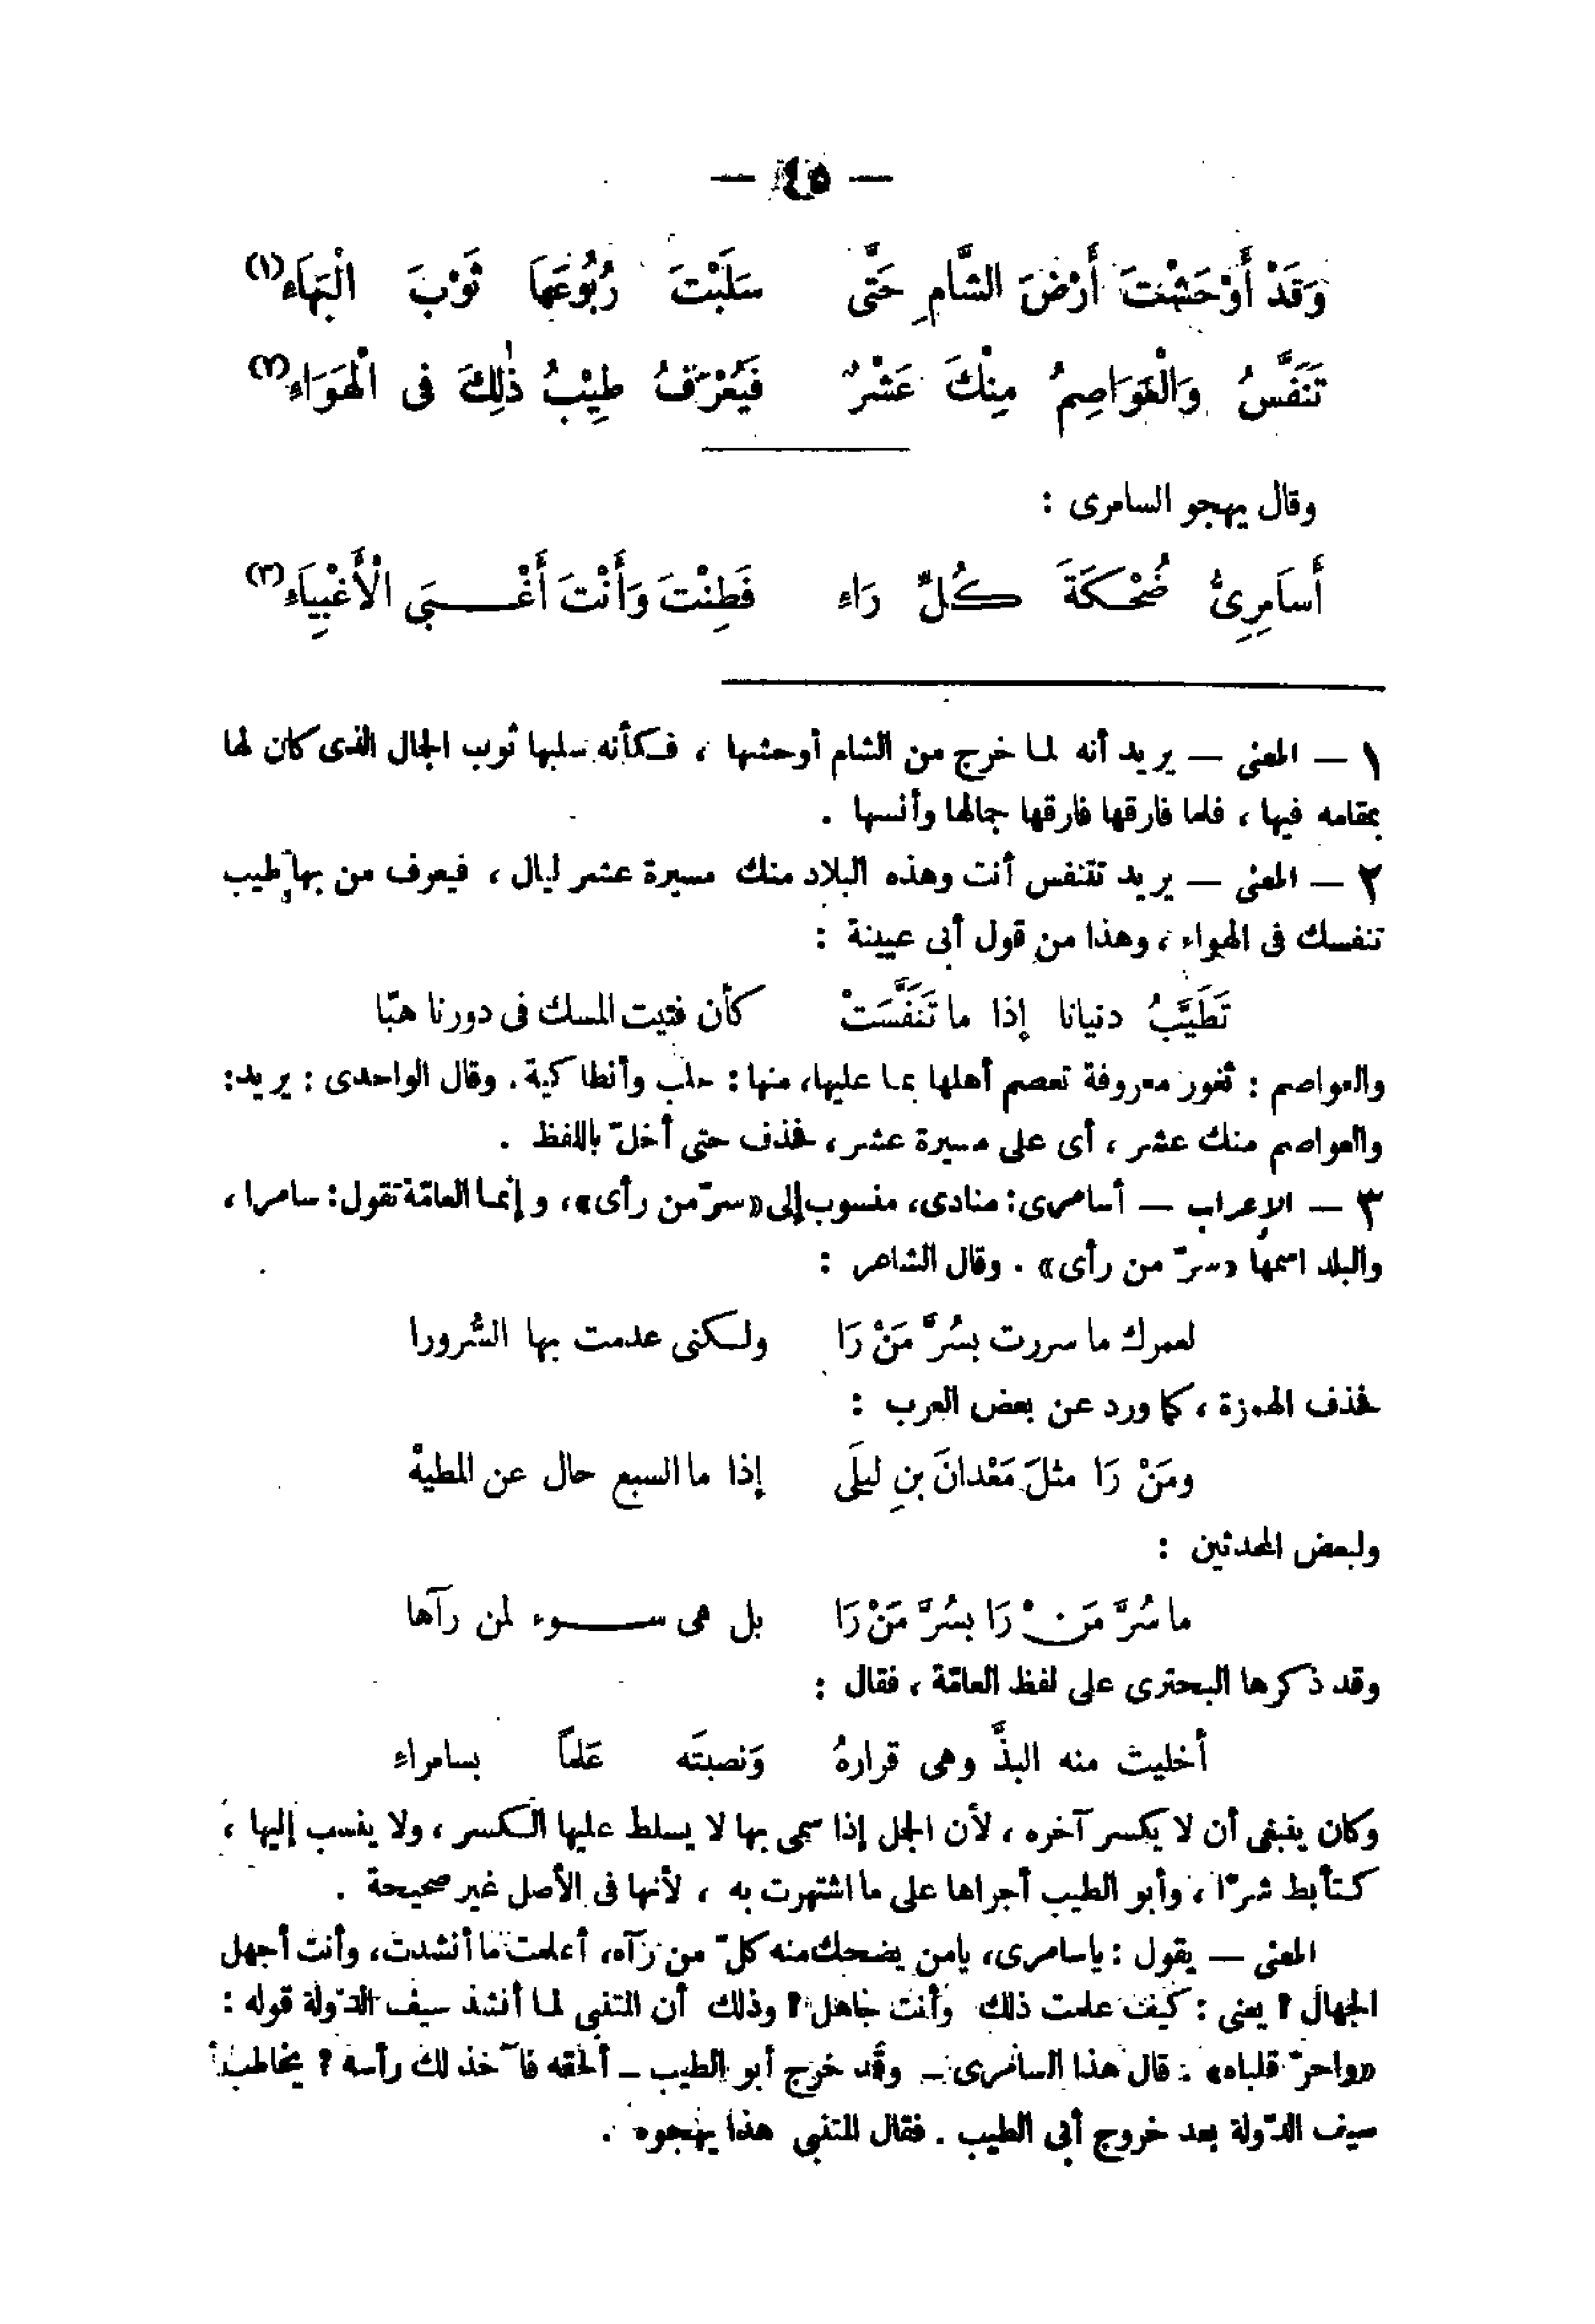 — ٤٥ —
وَقَدْ أَوْحَشْتَ أَرْضَ الشَّامِ حَتَّى سَلَبْتَ رُبُوعَهَا ثَوْبَ الْبَهَاءِ(١)
تَنَفَّسُ وَالْعَوَاصِمُ مِنْكَ عَشْرٌ فَيُعْرَفُ طِيْبُ ذٰلِكَ فى الْهَوَاءِ(٢)
وقال يهجو السامرى :
أَسَامِرِىُّ ضُحْكَةَ كُلِّ رَاءِ فَطِنْتَ وَأَنْتَ أَغْـبَى الْأَغْبِيَاءِ(٣)
١ — المعنى — يريد أنه لما خرج من الشام أوحشها ، فكأنه سلبها ثوب الجمال الذى كان لها
بمقامه فيها ، فلما فارقها فارقها جمالها وأنسها .
٢ — المعنى — يريد تتنفس أنت وهذه البلاد منك مسيرة عشر ليال ، فيعرف من بها طيب
تنفسك فى الهواء ، وهذا من قول أبى عيينة :
تَطَيَّبُ دنيانا إذا ما تَنَفَّسَتْ كأن فتيت المسك فى دورنا هبّا
والعواصم : ثغور معروفة تعصم أهلها بما عليها، منها : حلب وأنطاكية . وقال الواحدى : يريد:
والعواصم منك عشر ، أى على مسيرة عشر ، فحذف حتى أخلّ باللفظ .
٣ — الإعراب — أسامرى: منادى، منسوب إلى «سرّ من رأى»، وإنما العامّة تقول: سامرا ،
والبلد اسمها «سرّ من رأى» . وقال الشاعر :
لعمرك ما سررت بسُرَّ مَنْ رَا ولـكنى عدمت بها السُّرورا
فحذف الهمزة ، كما ورد عن بعض العرب :
ومَنْ رَا مثلَ مَعْدانَ بنِ ليلَى إذا ما السبع حال عن المطيهْ
ولبعض المحدثين :
ما سُرَّ مَنْ رَا بسُرَّ مَنْ رَا بل هى ســوء لمن رآها
وقد ذكرها البحترى على لفظ العامّة ، فقال :
أخليت منه البذَّ وهى قرارهُ وَنصبتَه عَلماً بسامراءِ
وكان ينبغى أن لا يكسر آخره ، لأن الجمل إذا سمى بها لا يسلط عليها الـكسر ، ولا ينسب إليها ،
كـتأبط شرًّا ، وأبو الطيب أجراها على ما اشتهرت به ، لأنها فى الأصل غير صحيحة .
المعنى — يقول : يا سامرى، يا من يضحك منه كلّ من رآه، أعلمت ما أنشدت، وأنت أجهل
الجهال ؟ يعنى : كيف علمت ذلك وأنت جاهل ؟ وذلك أن المتنبى لما أنشد سيف الدّولة قوله :
«واحرّ قلباه» : قال هذا السامرى — وقد خرج أبو الطيب — ألحقه فآخذ لك رأسه ؟ يخاطب
سيف الدّولة بعد خروج أبى الطيب . فقال المتنبى هذا يهجوه .